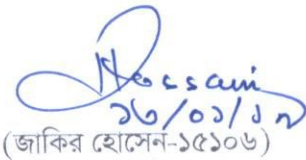 Hossain
১৬/০১/১৭
(জাকির হোসেন-১৫১০৬)